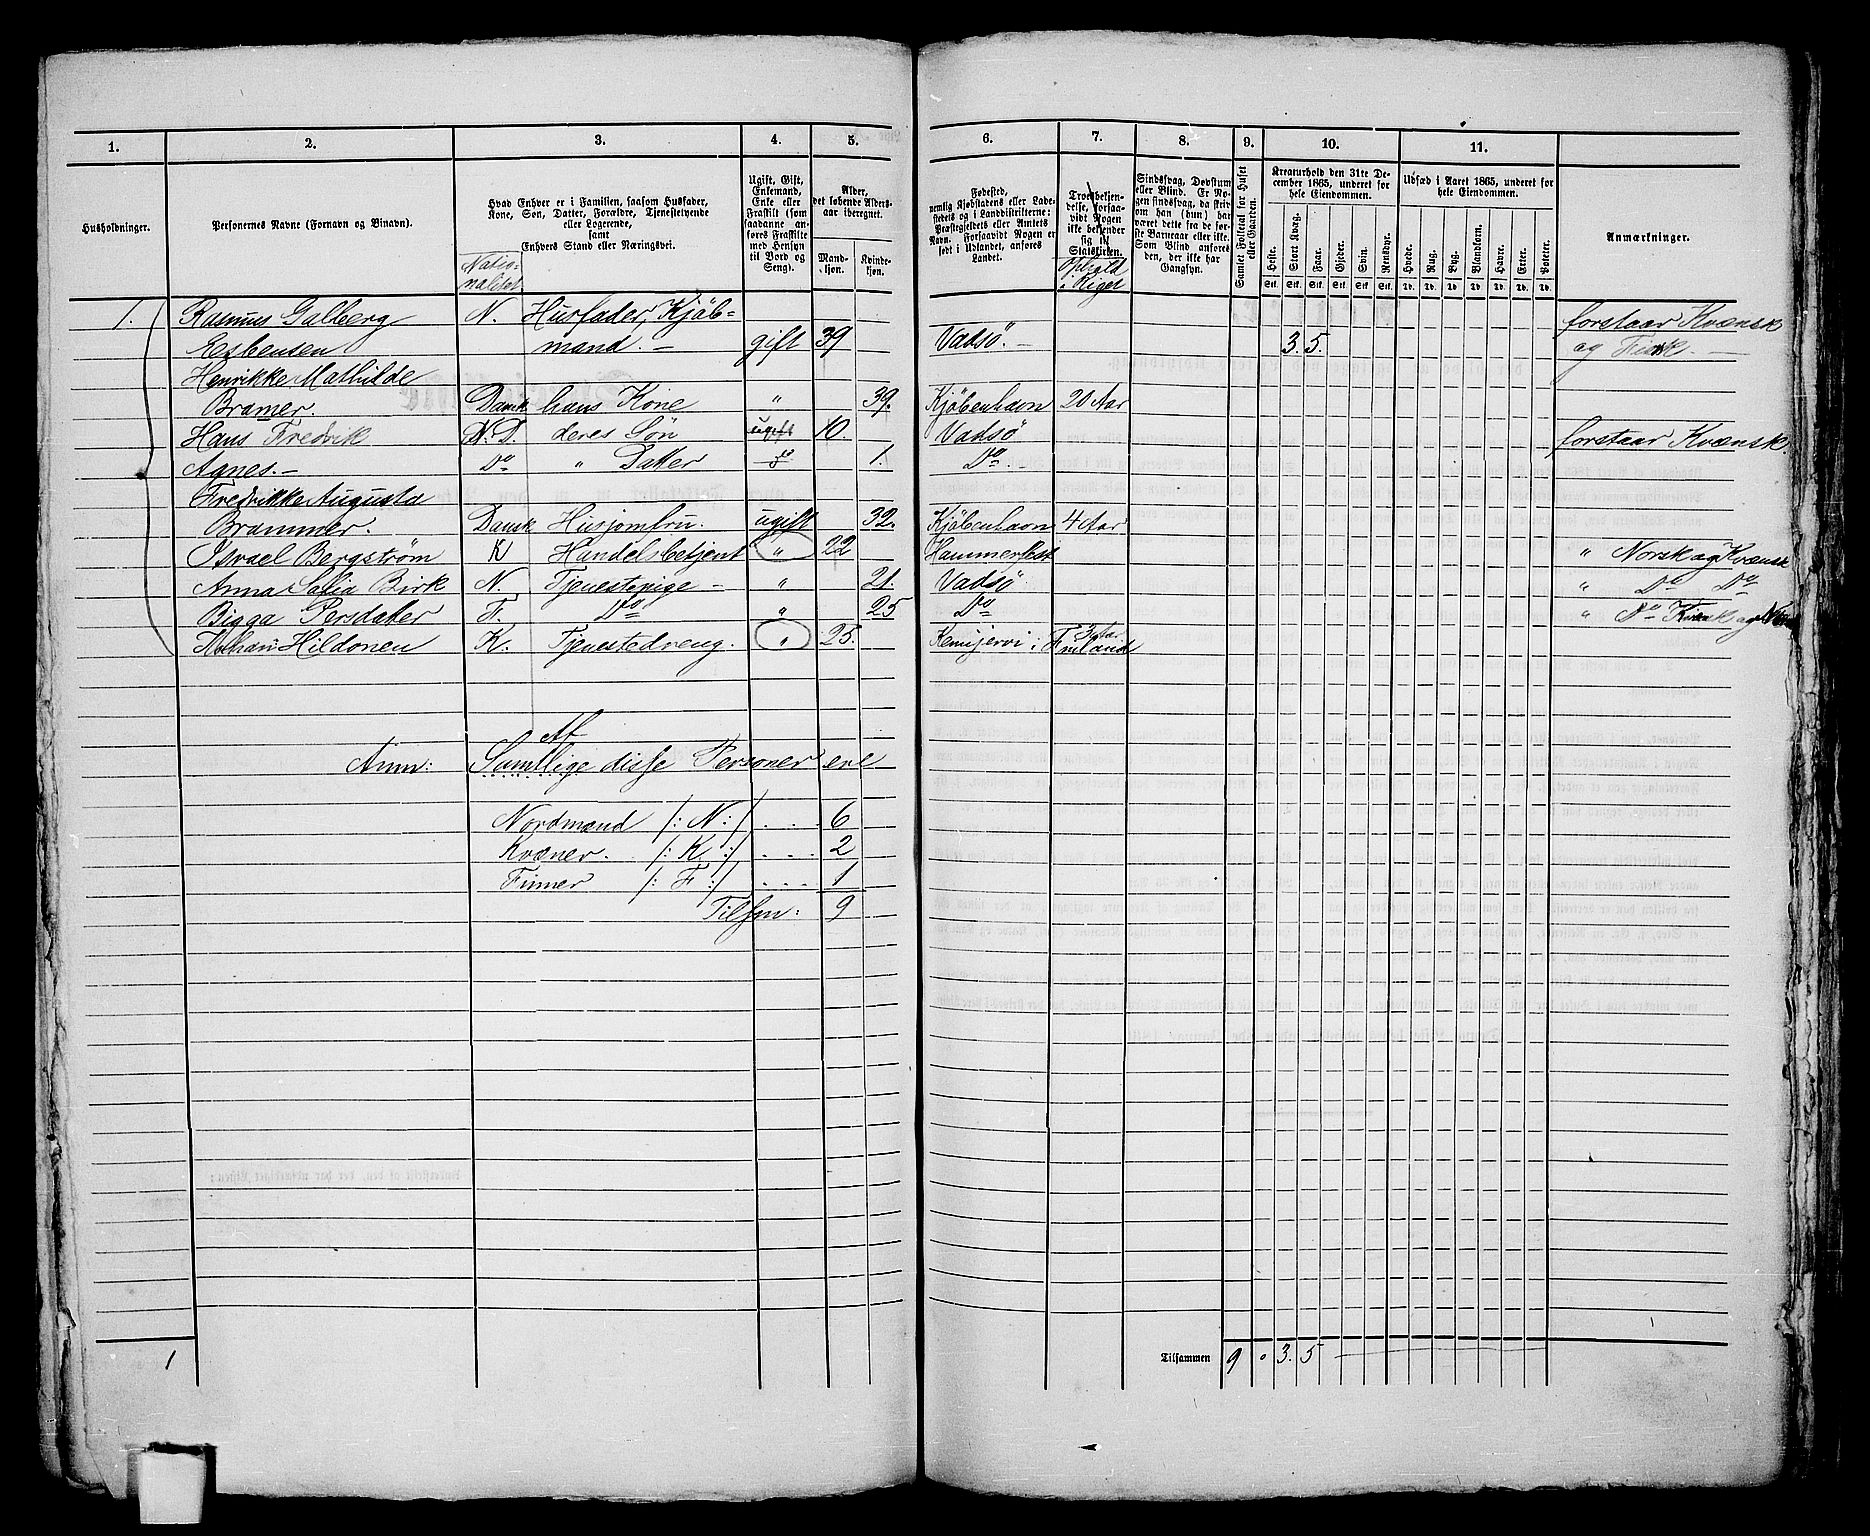 1. 2. 3. 4. 5. 6. 7. 8. 9. 10. 11.
Husholdninger.
Personernes Navne (Fornavn og Binavn).
Hvad Enhver er i Familien, saasom Husfader,
Kone, Søn, Datter, Forældre, Tjenestetyende
eller Logerende,
samt
Enhvers Stand eller Næringsvei.
Natio-
nalitet
Ugift, Gift,
Enkemand,
Enke eller
Fraskilt (som
saadanne an-
føres Fraskilte
med Hensyn
til Bord og
Seng).
Alder,
det løbende Alders-
aar iberegnet.
Mand-
kjøn.
Kvinde-
kjøn.
Fødested,
nemlig Kjøbstadens eller Lade-
stedets og i Landdistrikterne:
Præstegjeldets eller Amtets
Navn. Forsaavidt Nogen er
født i Udlandet, anføres
Landet.
Troesbekjen-
delse, forsaa-
vidt Nogen
ikke bekjender
sig til
Statskirken.
Ophold
i Riget
Sindssvag, Døvstum
eller Blind. Er No-
gen sindssvag, da skriv
om han (hun) har
været dette fra de
første Barneaar eller ikke.
Som Blind anføres
den, der ikke har
Gangsyn.
Samlet Folketal for Huset
eller Gaarden.
Kreaturhold den 31te De-
cember 1865, underet for
hele Eiendommen.
Heste. Stort Kvæg. Faar. Gjeder. Svin. Rensdyr.
Stk. Stk. Stk. Stk. Stk. Stk.
Udsæd i Aaret 1865, underet for
hele Eiendommen.
Hvede. Rug. Byg. Blandkorn. Havre. Erter. Poteter.
Td. Td. Td. Td. Td. Td. Td.
Anmærkninger.
1. Rasmus Galberg N. Husfader, Kjøb- forstaar Kvænsk
Esbensen mand. — gift 39 Vadsø. — 3. 5. og Finsk. —
Henrikke Mathilde
Bramer. Dansk hans Kone " 39. Kjøbenhavn 20 Aar
Hans Fredrik N. D. deres Søn ugift 10. Vadsø forstaar Kvænsk.
Agnes. — Do " Datter 1. Do. —
Fredrikke Augusta
Brammer. Dansk Husjomfru. ugift 32. Kjøbenhavn 4 Aar
Israel Bergstrøm K Handelsbetjent " 22 Hammerfest " Norsk og Kvænsk
Anna Birk N. Tjenestepige — " 21. Vadsø " Do Do
Bigga Persdatter F. Do " 25 Do " Do Kvænsk og
Johan Hildonen K. Tjenestedreng. " 25. Kemijervi i Finland 3 Aar
Af
Anm: Samtlige disse Personer ere
Nordmænd /: N :/ . . . 6
Kvæner. . /: K. :/ . . . . 2
Finner /: F :/ . . . . 1
Tilsm: 9
1
Tilsammen 9 " 3. 5